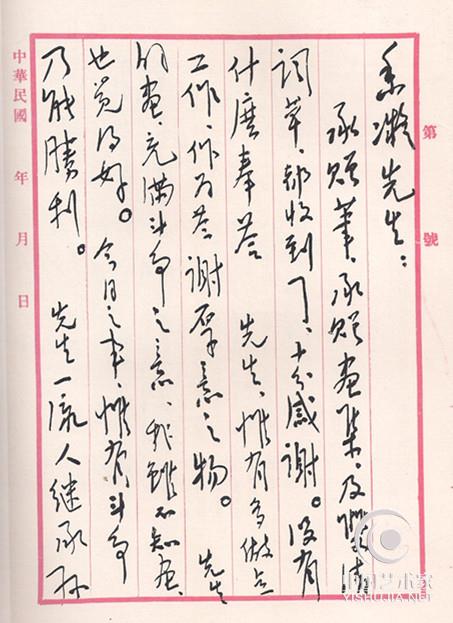 第 號
香凝先生：
承贈筆、承贈畫集、及雙清
詞草、都收到了、十分感謝。沒有
什麼奉答 先生、惟有多做点
工作、作为答謝厚意之物。 先生
的畫、充滿斗争之意、我雖不知畫、
也覺得好。今日之事、惟有斗争
乃能勝利。 先生一流人继承孙
中華民國 年 月 日
YISHUJIA.NET